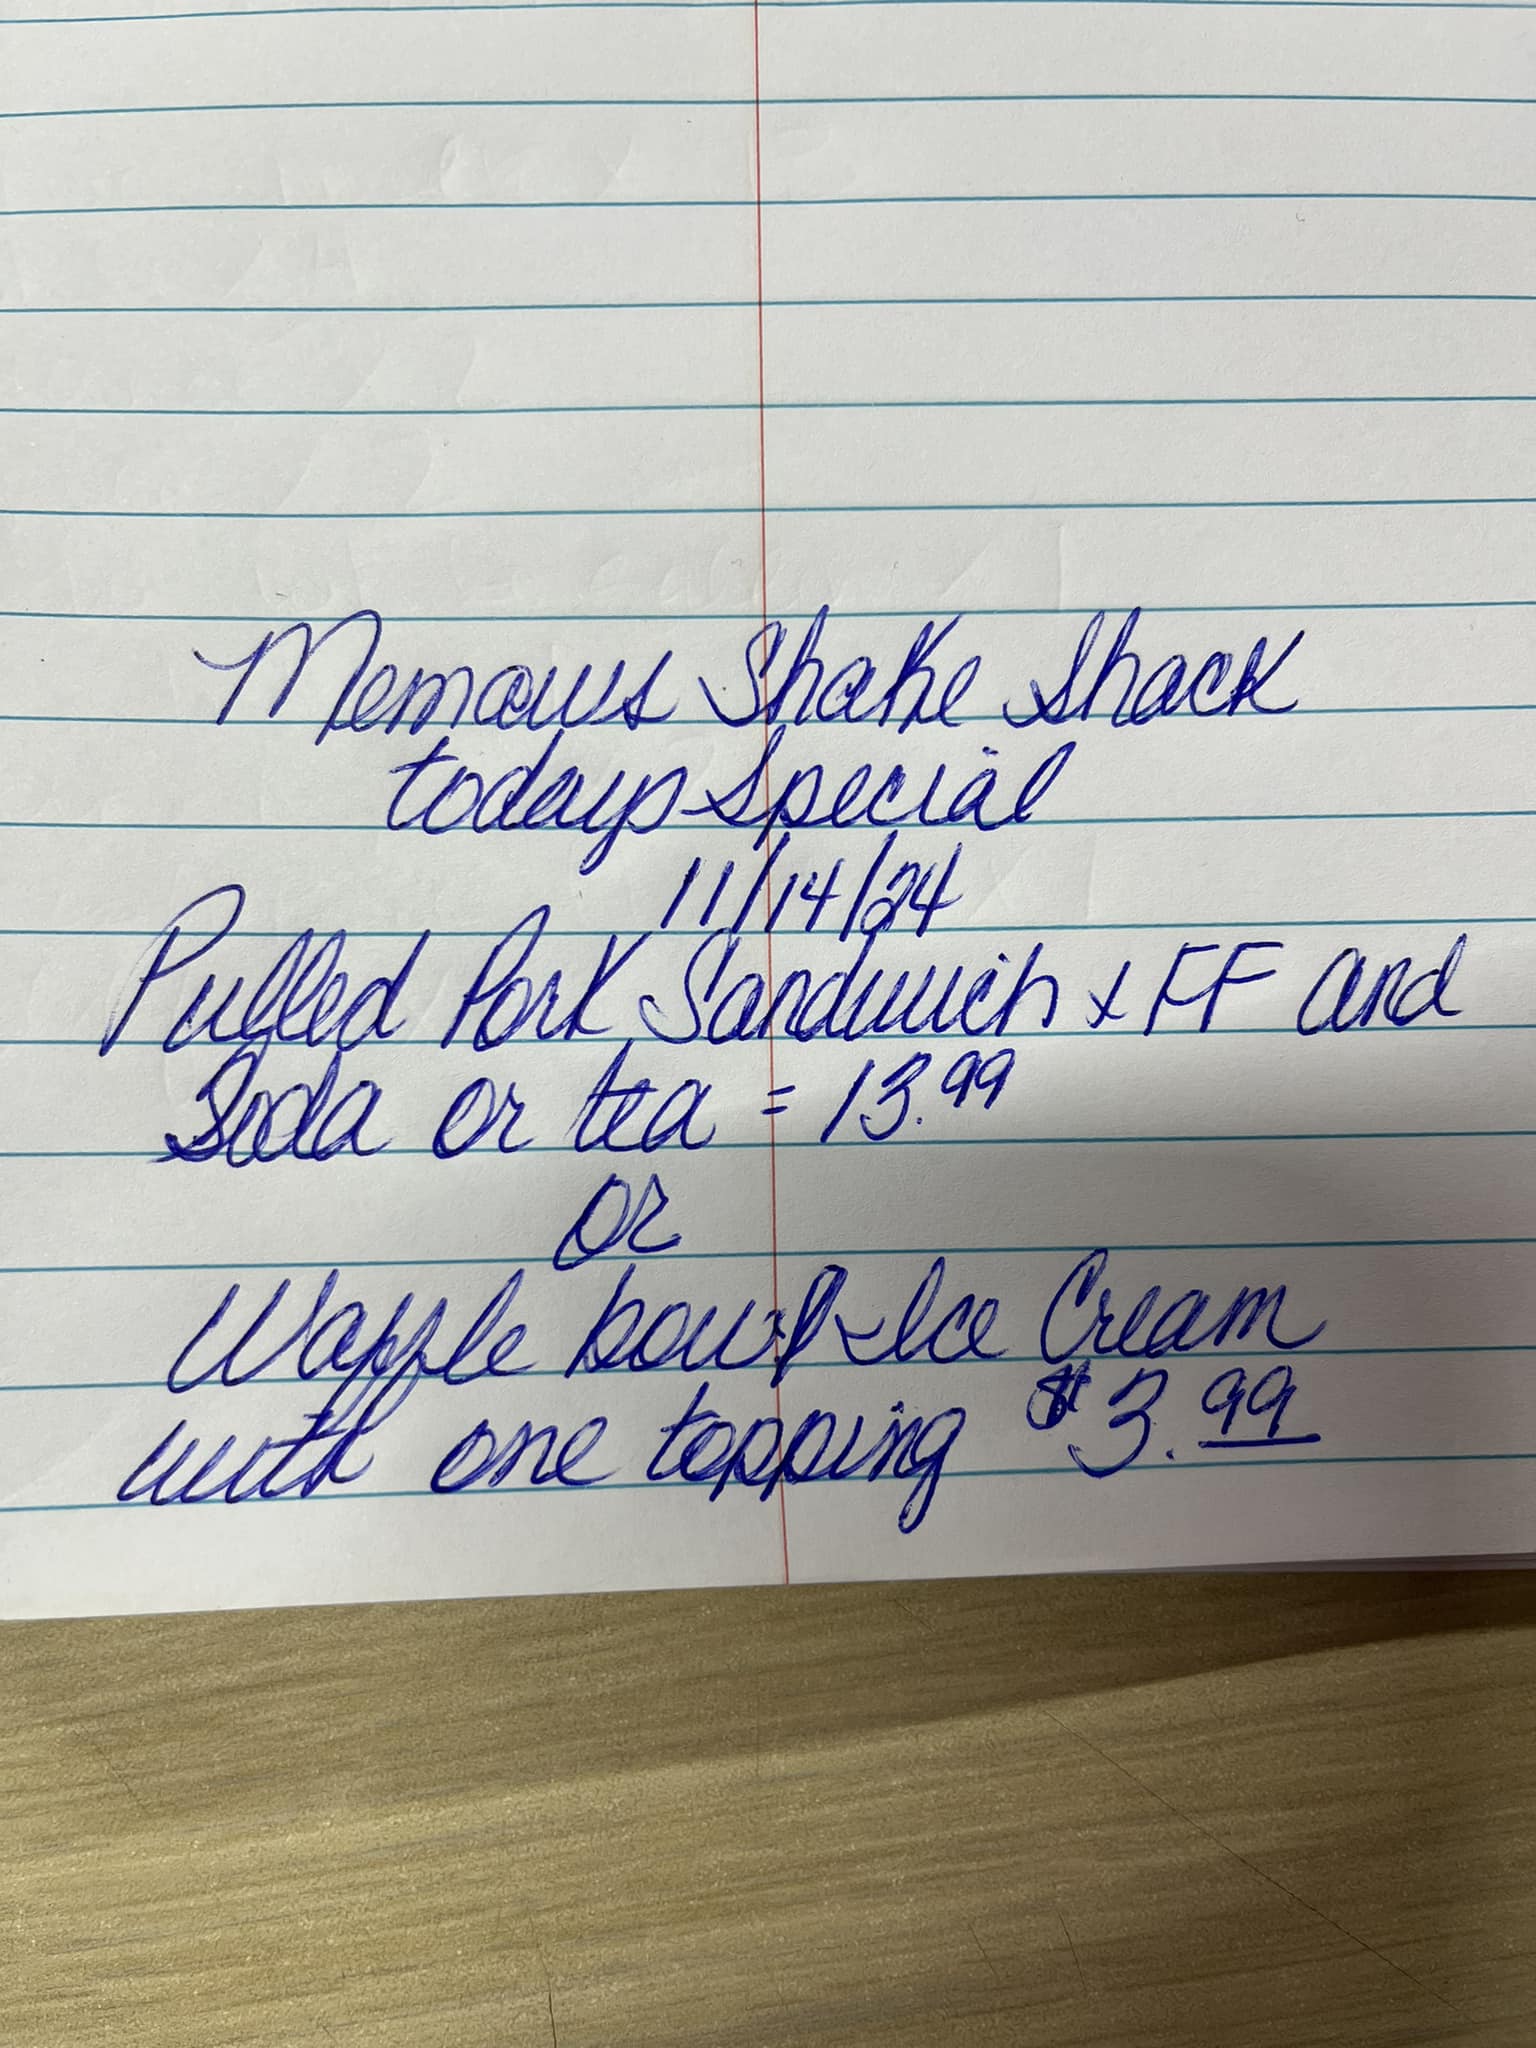 Memaws Shake Shack
todays Special
11/14/24
Pulled Pork Sandwich + FF and
Soda or tea = 13.99
or
Waffle bowl - Ice Cream
with one topping $3.99